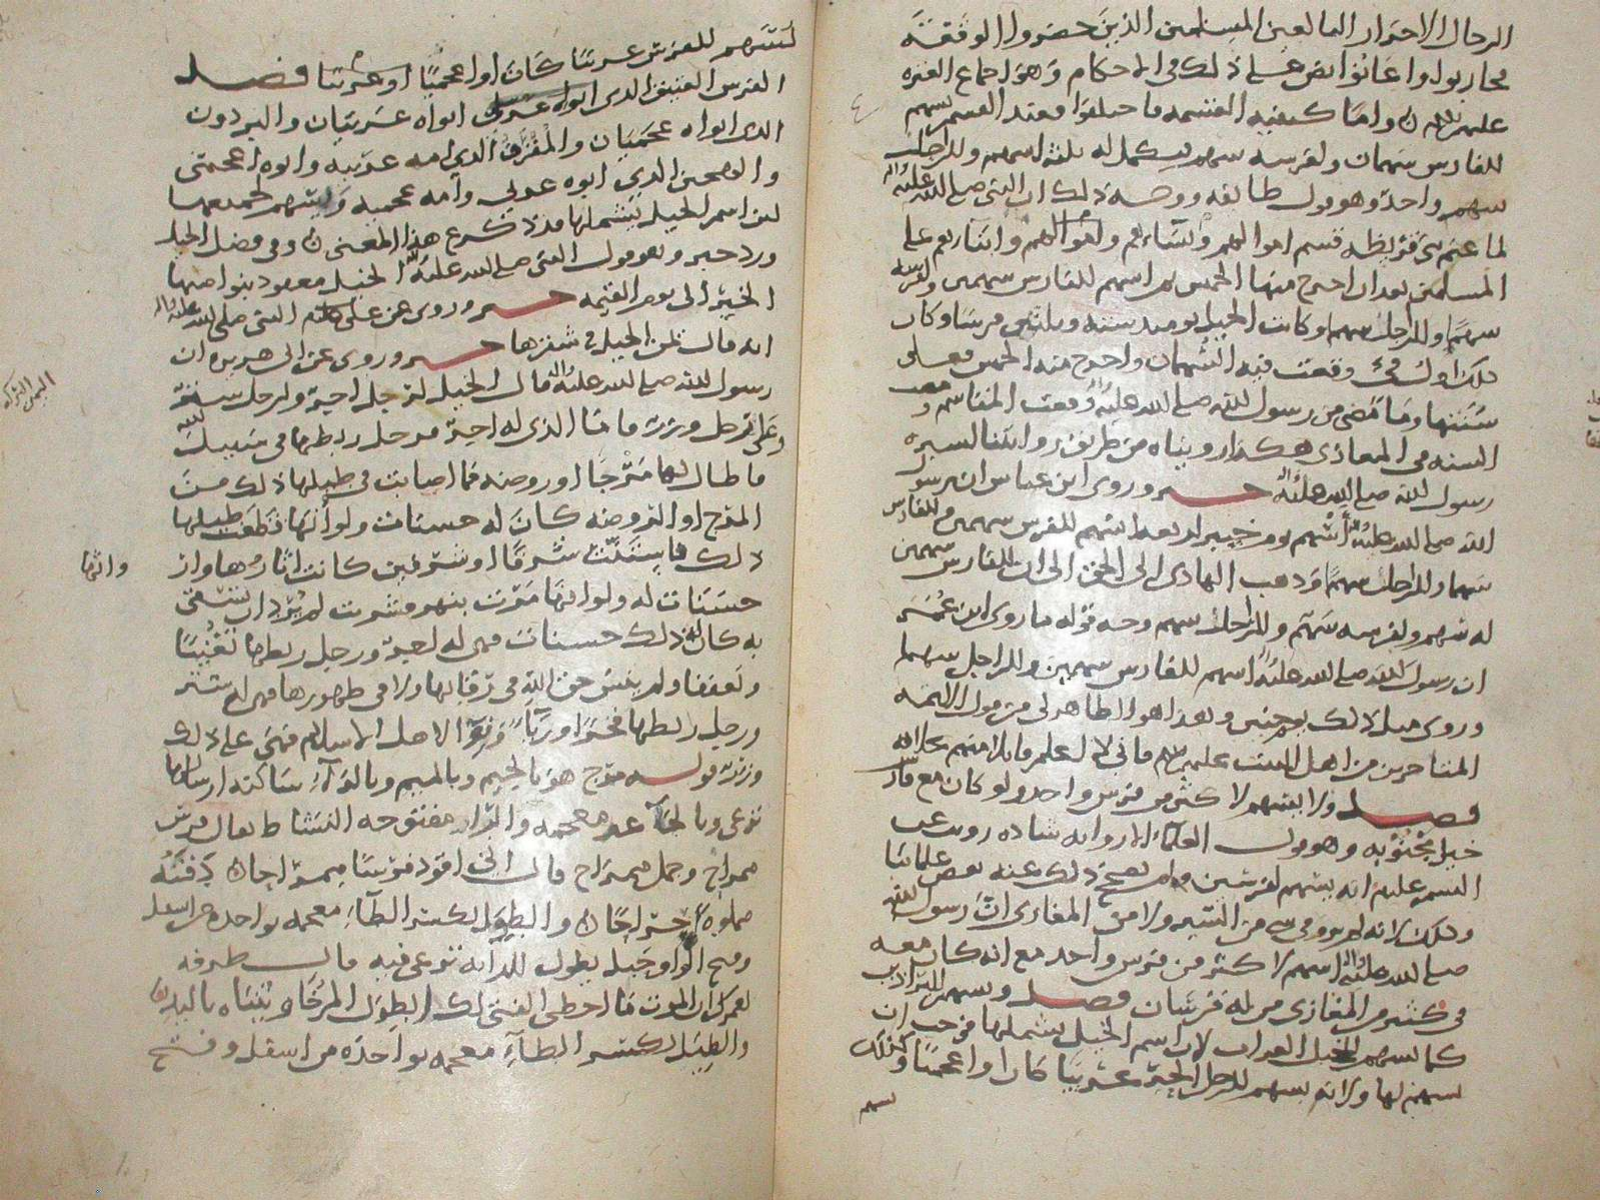 الرجال الاحرار البالغين المسلمين الذين حضروا الوقعة
محاربوا واعانوا نص على ذلك في الاحكام وهو اجماع العترة
عليهم السلم واما كيفية القسمة فا عند القسم يسهم
للفارس سهمان ولفرسه سهم يكمل له ثلثة اسهم وللراجل
سهم واحد وهو قول طائفة ووجه ذلك ان النبي صلى الله عليه واله
لما غنم بني قريظة قسم اموالهم ونساءهم وابناءهم على
المسلمين بعد ان اخرج منها الخمس ثم اسهم للفارس سهمين ولفرسه
سهما وللراجل سهم وكانت الخيل يومئذ ستة وثلثين فرسا وكان
ذلك اول فيء وقعت فيه السهمان واخرج منه الخمس فعلى
سنتها وما مضى من رسول الله صلى الله عليه وقعت المقاسم ومضت
السنة في المغازي هكذا رويناه من طريق رواتنا لسيرة
رسول الله صلى الله عليه واله خبر وروى ابن عباس ان رسول
الله صلى الله عليه واله اسهم يوم خيبر اسهم للفرس سهمين وللفارس
سهما وللراجل سهما وذهب الهادي الى الحق الى ان للفارس سهمين
له سهم ولفرسه سهم وللراجل سهم وجه قوله ما روى ابن عمر
ان رسول الله صلى الله عليه اسهم للفارس سهمين وللراجل سهما
وروي مثل ذلك وهذا هو الظاهر لي من قول الائمة
المتاخرين من اهل البيت عليهم السلم فاني لا اعلم قائلا منهم بخلافه
فصل ولا يسهم لاكثر من فرس واحد ولو كان مع فارس
خيل مجنوبة وهو قول العلماء الا رواية شاذة رويت عن
عليه انه يسهم لفرسين ولم يصحح ذلك عنه بعض علمائنا
وذلك لانه لم يرو في شيء من السير ولا من المغازي ان رسول الله
صلى الله عليه واله اسهم لاكثر من فرس واحد مع انه كان معه
في كثير من المغازي من له فرسان فصل ويسهم للبراذين
كما يسهم للخيل العراب لان اسم الخيل يشملها فوجب ان
يسهم لها ولانه يسهم للرجل الحر عربيا كان او اعجميا وكذلك
يسهم
لنسهم للفرس عربيا كان او اعجميا او عربيا فصل
الفرس العتيق الذي ابواه عربيان والبرذون
الذي ابواه عجميان والمقرف الذي امه عربية وابوه اعجمي
والهجين الذي ابوه عربي وامه عجمية ويسهم لجميعها
لان اسم الخيل يشملها هذا المعنى وفي فضل الخيل
ورد خبر وهو قول النبي صلى الله عليه واله الخيل معقود بنواصيها
الخير الى يوم القيمة خبر وروي عن علي عليه السلم النبي صلى الله عليه واله
انه قال يمن الخيل في شقرها خبر وروي عن ابي هريرة ان
رسول الله صلى الله عليه واله قال الخيل لرجل اجر ولرجل ستر
وعلى رجل وزر فاما الذي له اجر فرجل ربطها في سبيل الله
فاطال لها مرجا او روضة فما اصابت في طيلها ذلك من
المرج او الروضة كان له حسنات ولو انها قطعت طيلها
ذلك فاستنت شرفا او شرفين كانت اثارها وارواثها
حسنات له ولو انها مرت بنهر فشربت لم يرد ان يسقي
به كان ذلك حسنات فهي له اجر ورجل ربطها تغنيا
وتعففا ولم ينس حق الله في رقابها ولا في ظهورها فهي له ستر
ورجل ربطها فخرا ورياء ونواء لاهل الاسلام فهي على ذلك
وزر قوله مرج هو بالجيم وبالميم وبالراء ساكنة ارسالها
ترعى وبالحاء غير معجمة والراء مفتوحة النشاط يقال فرس
ممراح وجمل ممراح قال اني اقود فرسا ممراحا
والطول بكسر الطاء معجمة بواحدة من اسفل
وفتح الواو حبل يطول للدابة ترعى فيه قال طرفة
لعمرك ان الموت ما اخطى الفتى لكالطول المرخى وثنياه باليد
والطيل بكسر الطاء معجمة بواحدة من اسفل وفتح